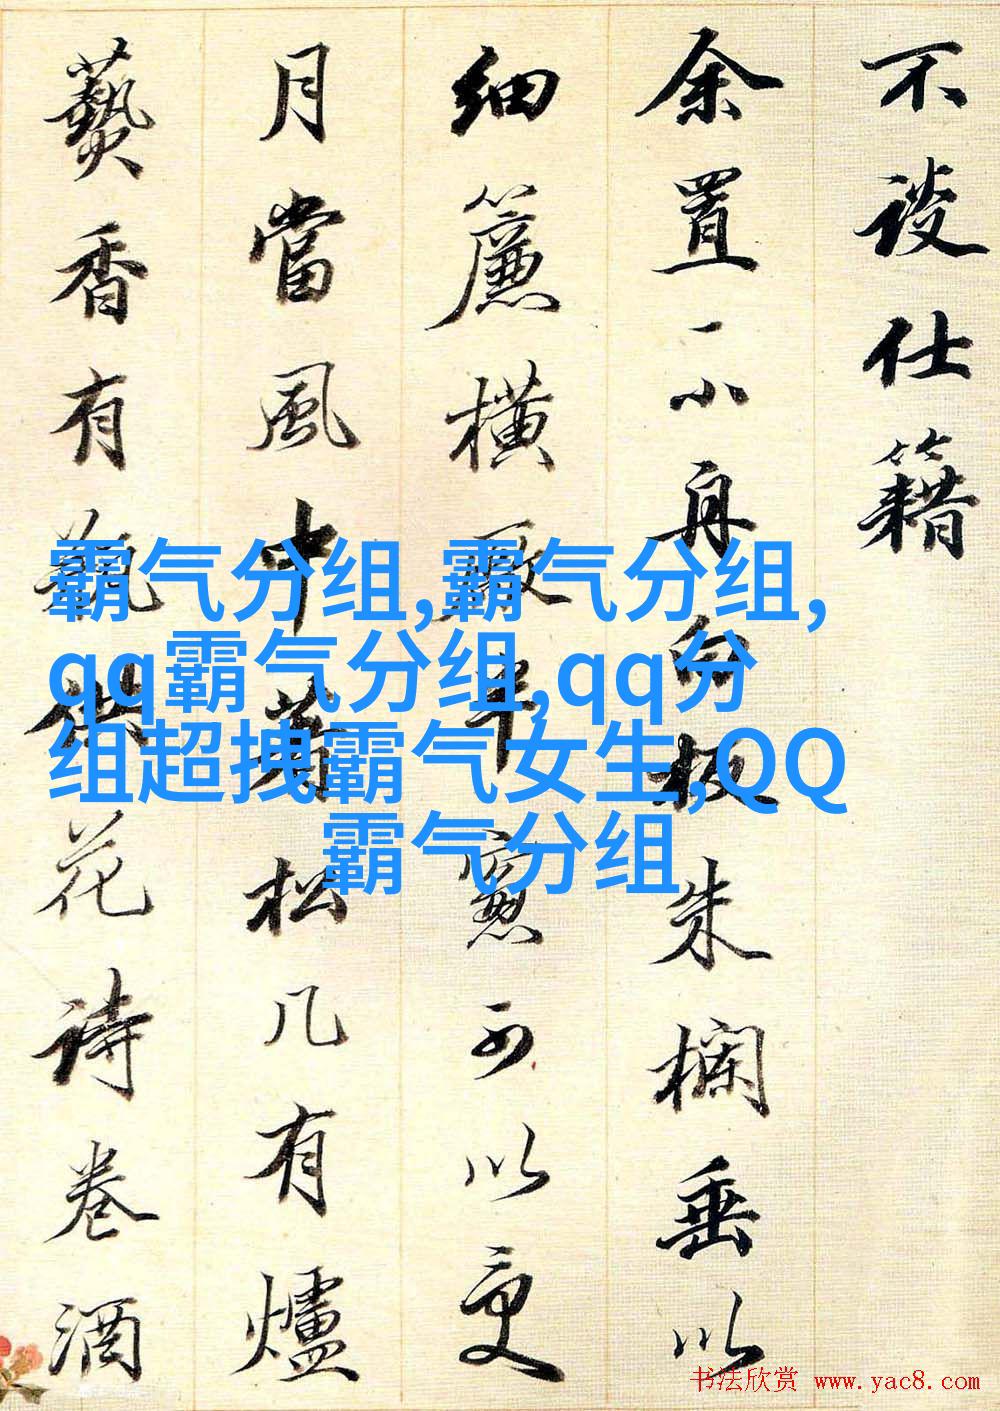 不談仕籍
余置一小舟白板朱欄垂以
細簾橫半窻可以更
月當風中著松几有爐
爇香有瓶供花詩卷酒
霸气分组,霸气分组,
qq霸气分组,qq分
组超拽霸气女生,QQ
霸气分组
书法欣赏 www.yac8.com